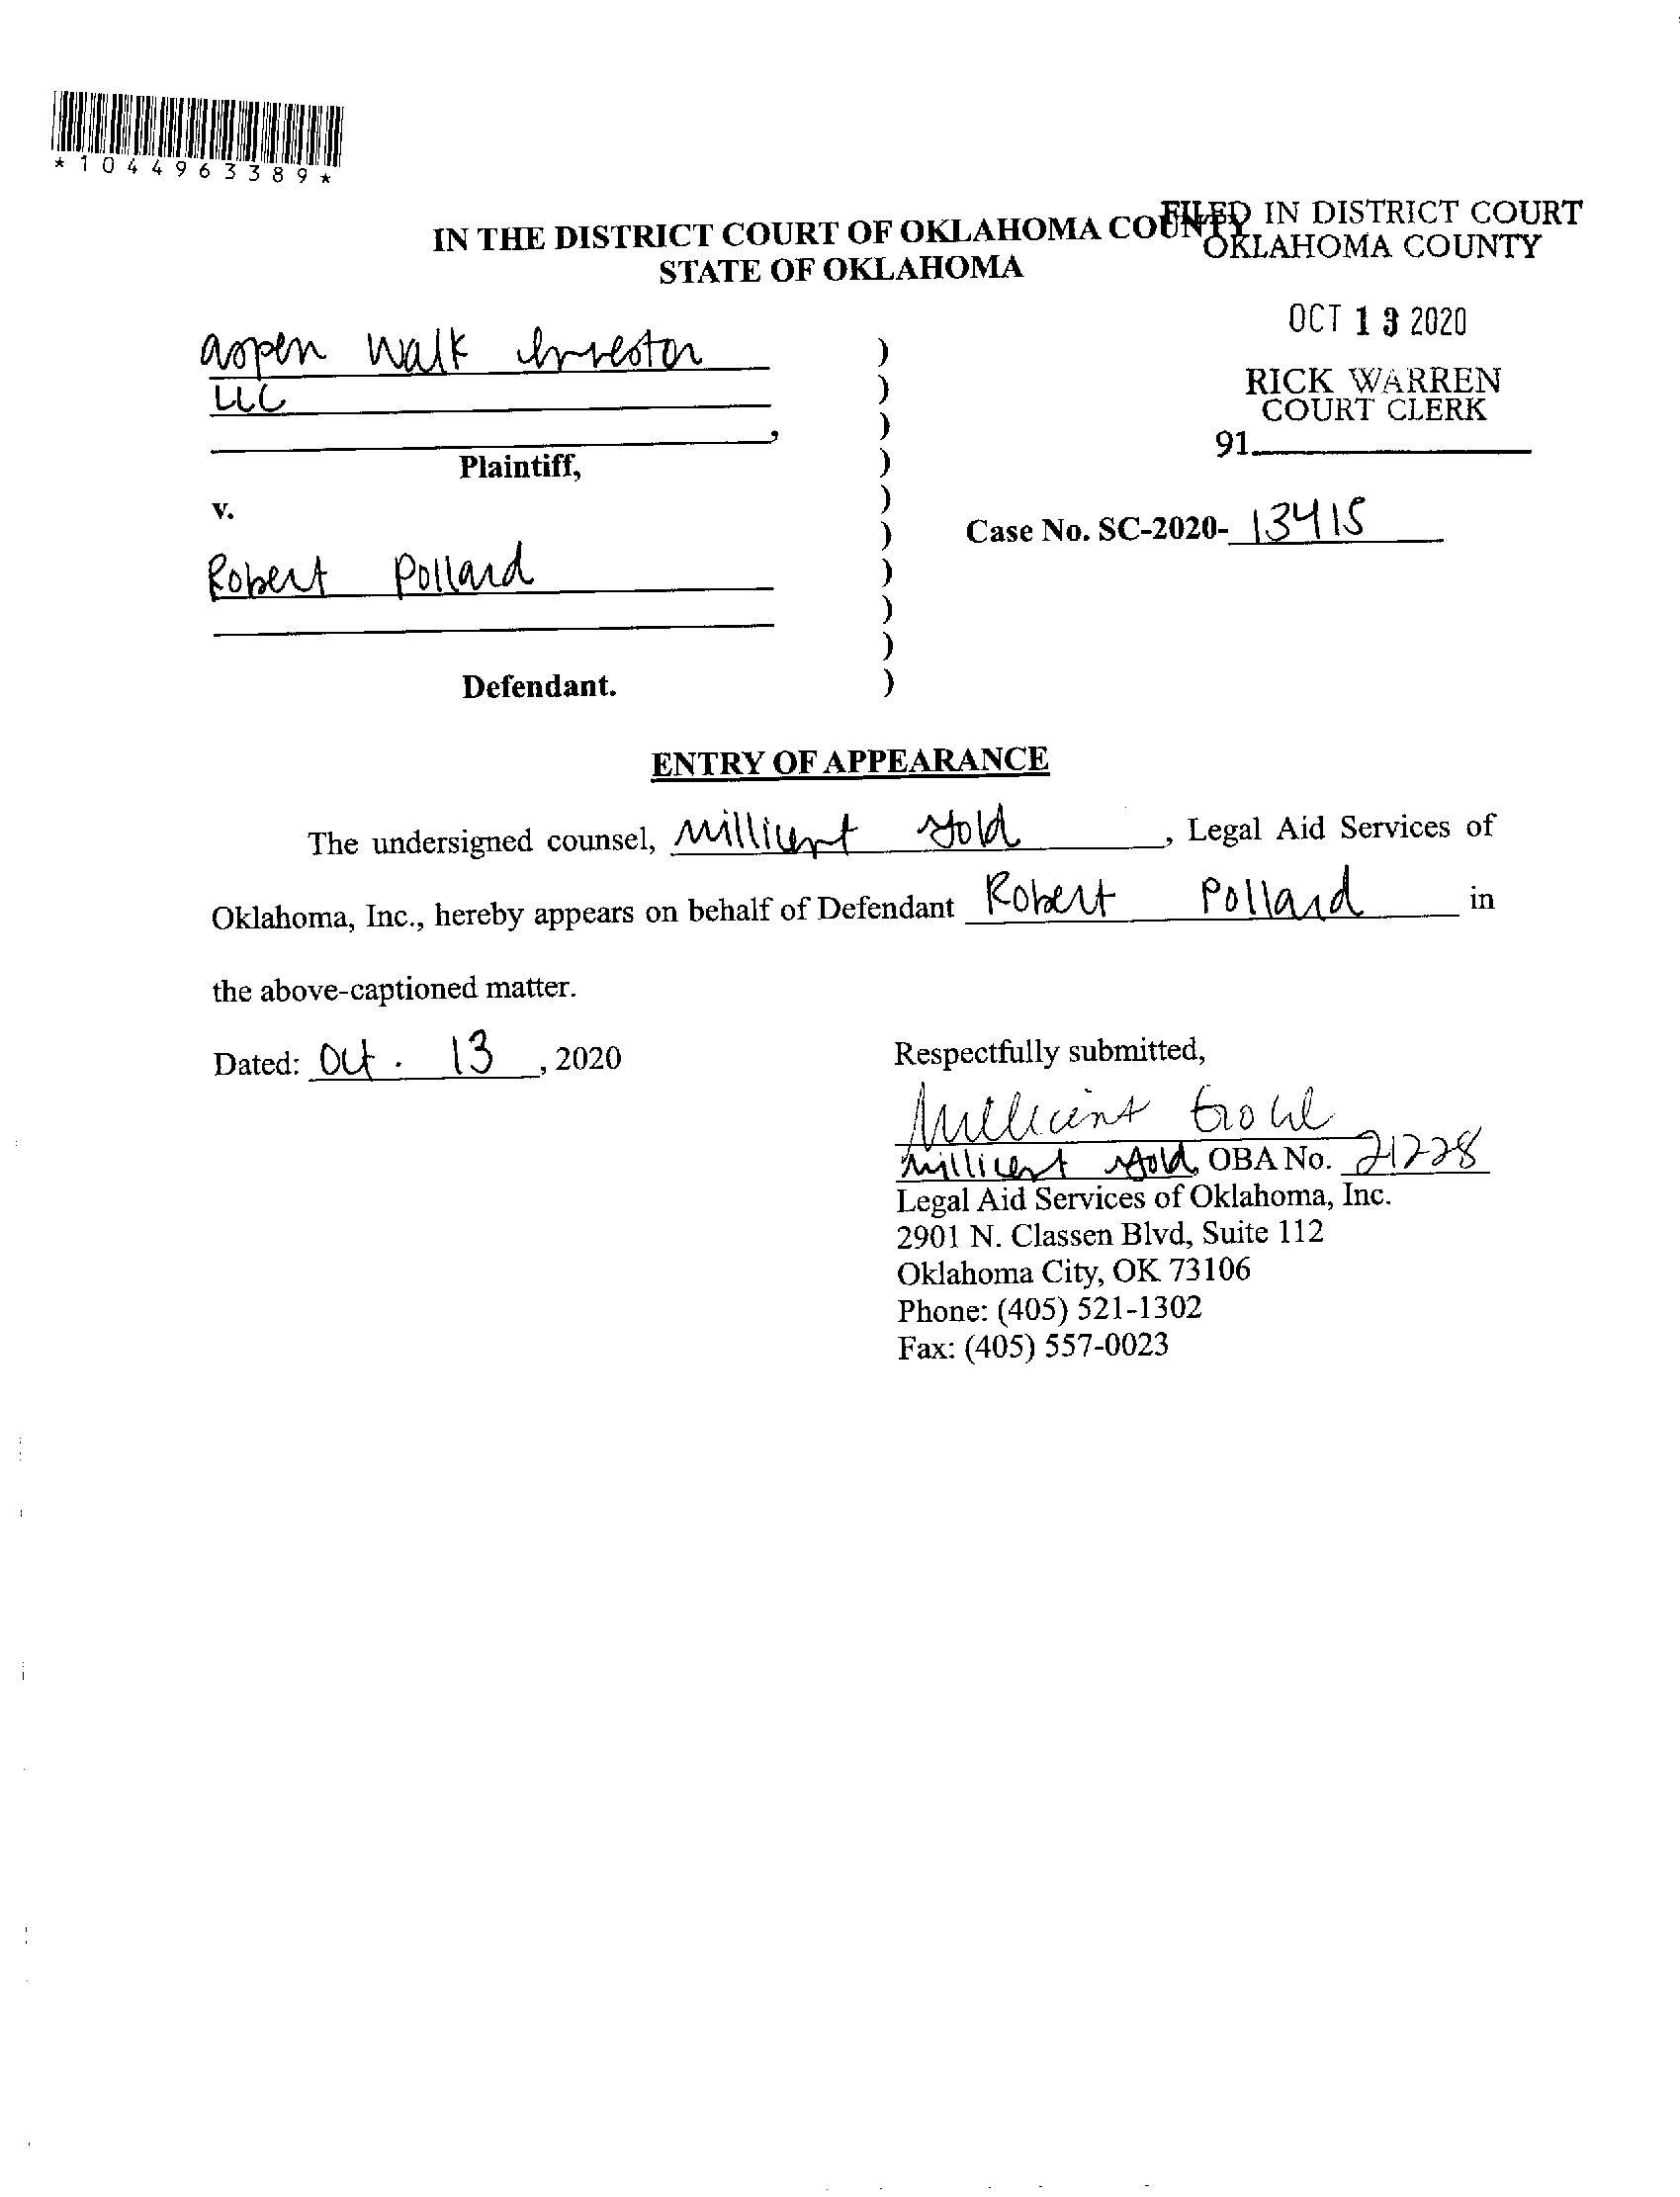 *1044963389*
IN THE DISTRICT COURT OF OKLAHOMA COUNTY
STATE OF OKLAHOMA
FILED IN DISTRICT COURT
OKLAHOMA COUNTY
OCT 13 2020
RICK WARREN
COURT CLERK
91
Aspen Walk Investor
LLC
,
Plaintiff,
v.
Case No. SC-2020- 13415
Robert Pollard
Defendant.
ENTRY OF APPEARANCE
The undersigned counsel, Millicent , Legal Aid Services of
Oklahoma, Inc., hereby appears on behalf of Defendant Robert Pollard in
the above-captioned matter.
Dated: Oct. 13, 2020
Respectfully submitted,
Millicent
Millicent OBA No. 21228
Legal Aid Services of Oklahoma, Inc.
2901 N. Classen Blvd, Suite 112
Oklahoma City, OK 73106
Phone: (405) 521-1302
Fax: (405) 557-0023